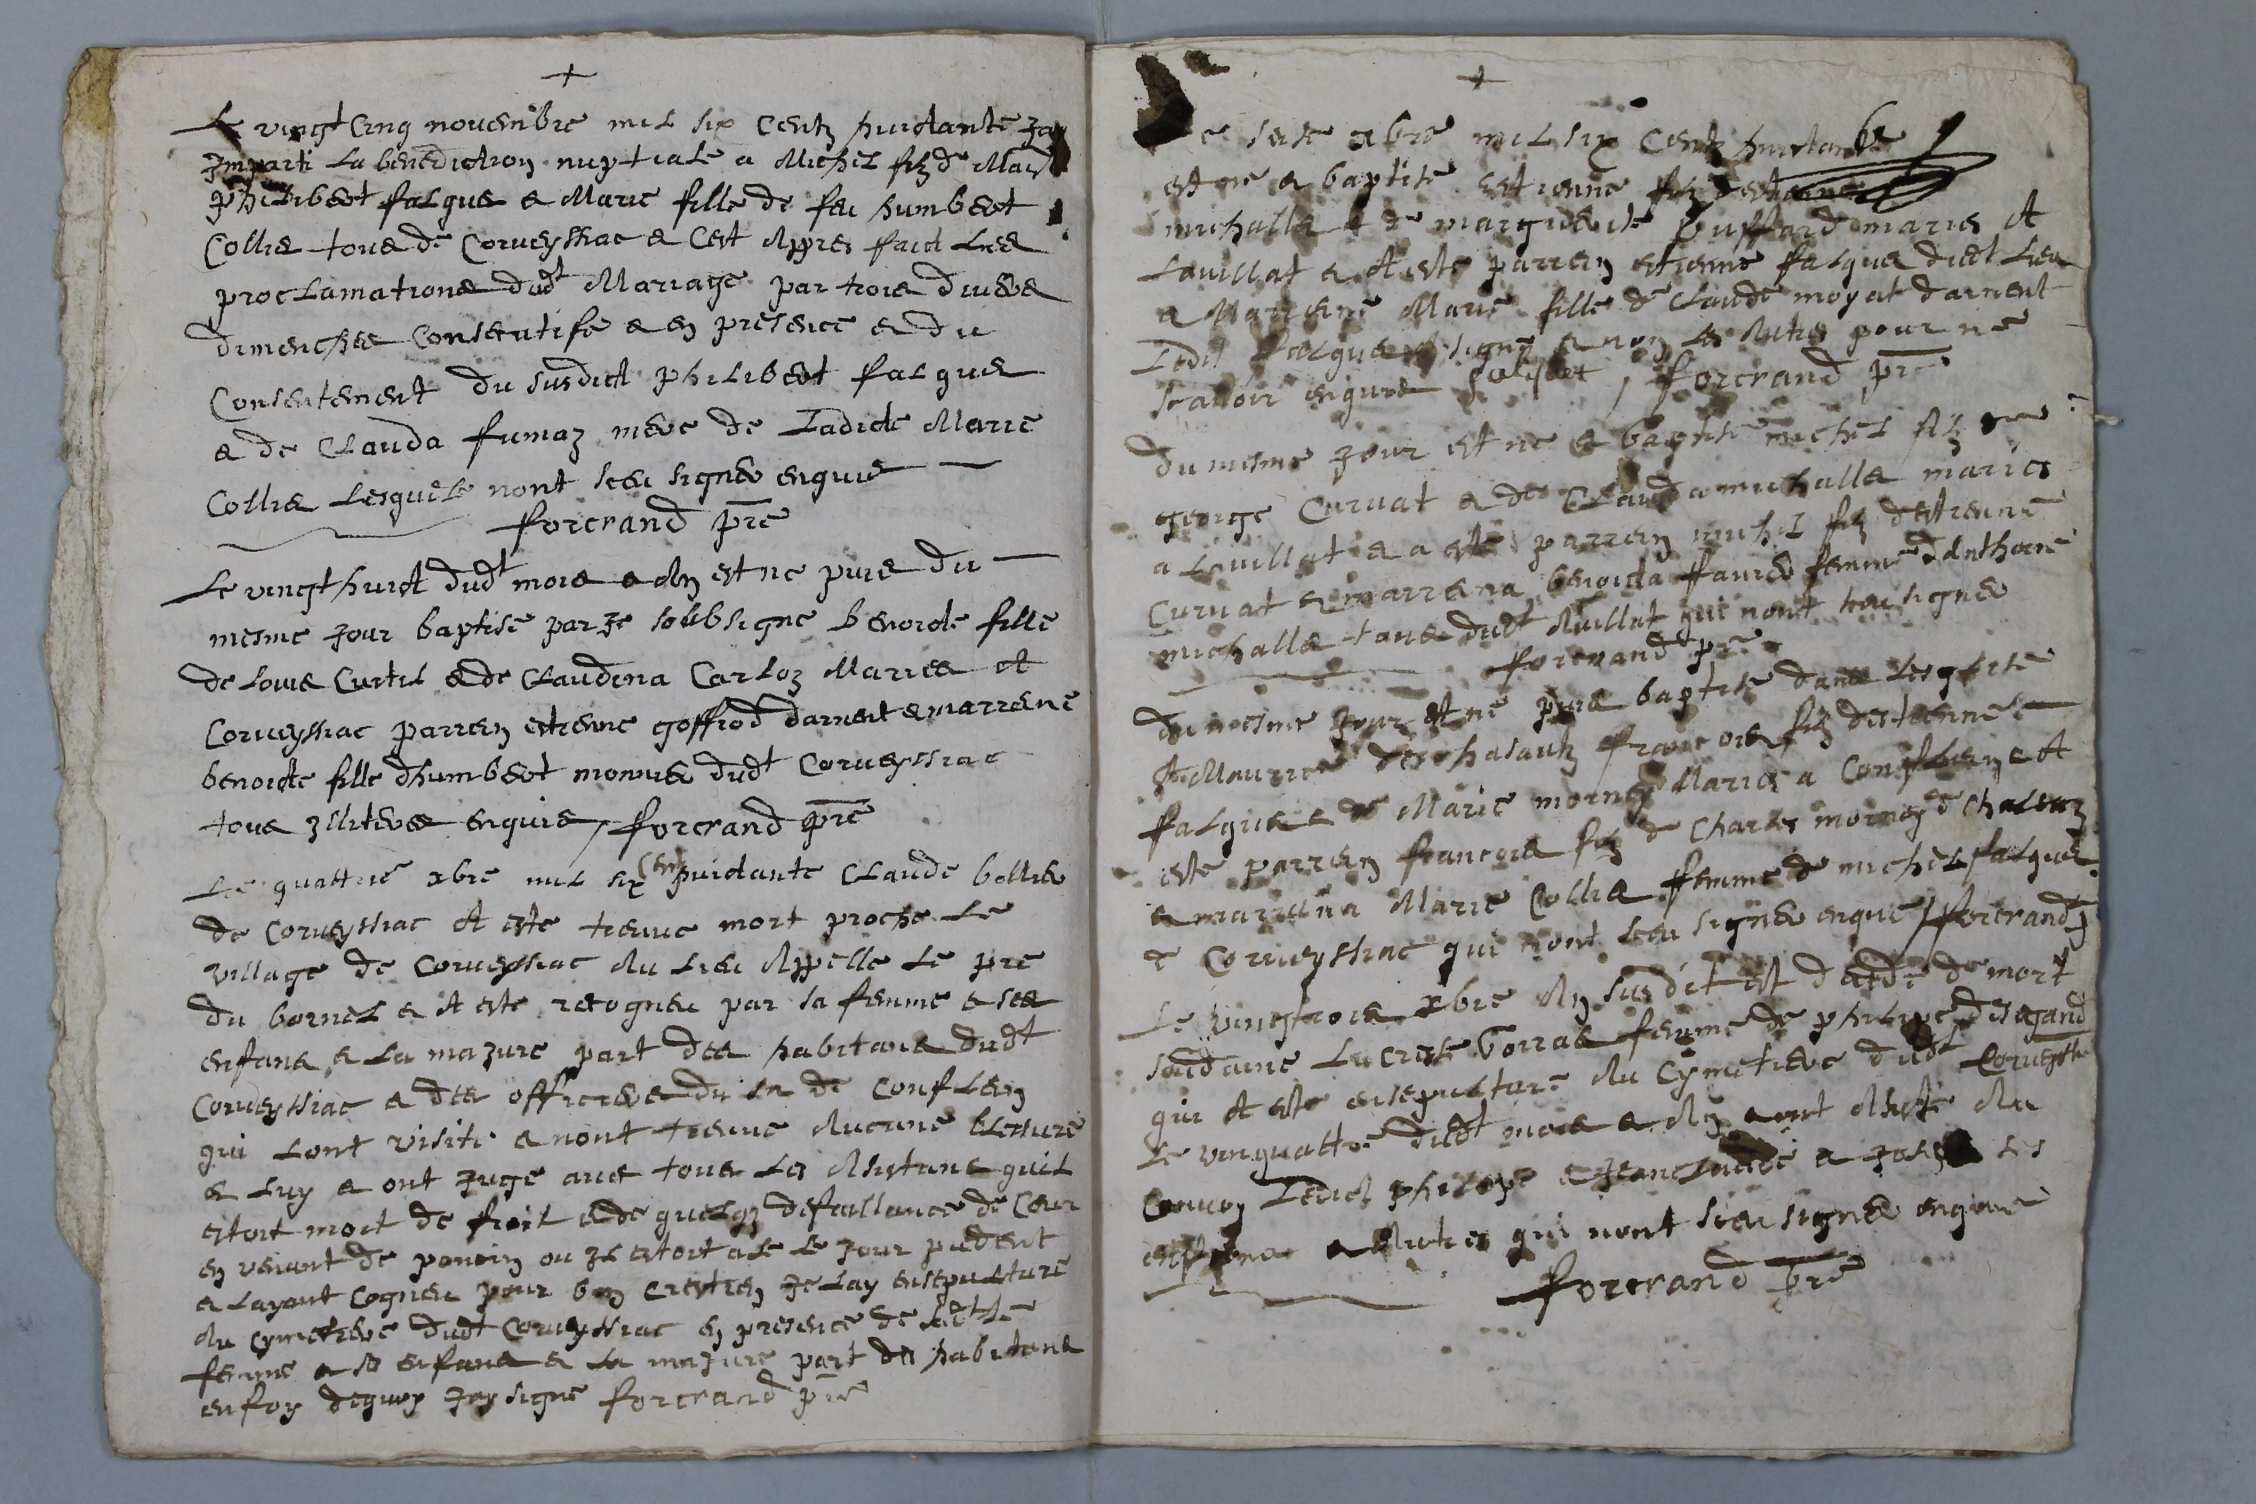 +
Le vingt Cinq novembre mil six Centz huictante Jay
Imparti La benediction nuptiale a Michel filz de Mai
philibert falque & Marie fille de feu humbert
Collie tous de Corveyssiac & Cest Appres faict Les
proclamations dudt Mariage par trois divers
dimenches Consecutifs & en presence & du
Consentement du susdict philibert falque
& de Clauda fumaz mere de Ladicte Marie
Collie Lesquels nont sceu signer enquis
forcrand pre
Le vingt huict dudt mois & An est ne puis du
mesme Jour baptise par Je soubsigne benoicte fille
de Louis Curtil & de Claudina Carloz Maries et
Corveyssiac parrein estienne goffiod darnent & marrene
benoicte fille dhumbert monnier dudt Corveyssiac
tous Illiteres enquis, forcrand pre
Le quattrie xbre mil six Cent huictante Claude bollie
de Corveyssiac At este treuve mort proche Le
village de Corveyssiac Au Lieu Appelle Le pre
du bornel & At este recogneu par sa femme & ses
enfans & La majure part des habitans dudt
Corveyssiac & des officiers du sr de Conflens
qui Lont visite & nont treuve Aucune blessure
a Luy & ont Juge avec tous Les Assistans quil
estoit mort de froit & de quelqz defaillance de Ceur
en venant de poncin ou Il estoit ale le Jour
& Layant Cogneu pour bon Crestien Je Lay ensepulture
Au Cymetiere dudt Corveyssiac en presence de
femme & ses enfans & La majure part des habitans
en foy dequoy Jay signe forcrand pre
+
Le seze xbre mil six Centz huictante
est ne & baptise estienne filz destienne
michalle & de margueritte buffard maries At
Lavillat & At este parrein estienne falque dudt Lieu
& Marrene Marie fille de Claude moyat darnent
Ledit falque A signe & non Les Autres pour ne
scavoir enquis falque, forcrand pre
du mesme Jour est ne & baptise michel filz de
george Curvat & de Clauda michalle maries
a Lavillat & a este parrein michel filz destienne
Curvat & marrena benoicta favier femme dAnthoine
michalle tous dudt Avillat qui nont sceu signer
forcrand pre
du mesme Jour est ne puis baptise dans Lesglise
St Maurice deschasaulz francois filz destienne
falque & de Marie mornay Maries a Conflens & At
este parrein francois filz de Charles mornay de Chaleaz
& marrena Marie Collie femme de michel falque
de Corveyssiac qui nont sceu signer enquis, forcrand
Le vingtrois xbre An susdit est decede de mort
soudaine Lucresse borras femme de philipe desagand
qui At este ensepulture Au Cymetiere dudt Corveyssiac
Le vinquattre dudt mois & An & ont Assiste Au
Convoy Ledict philipe & Jean Claude & Joseph ses
enfans & Autres qui nont sceu signer enquis
forcrand pre